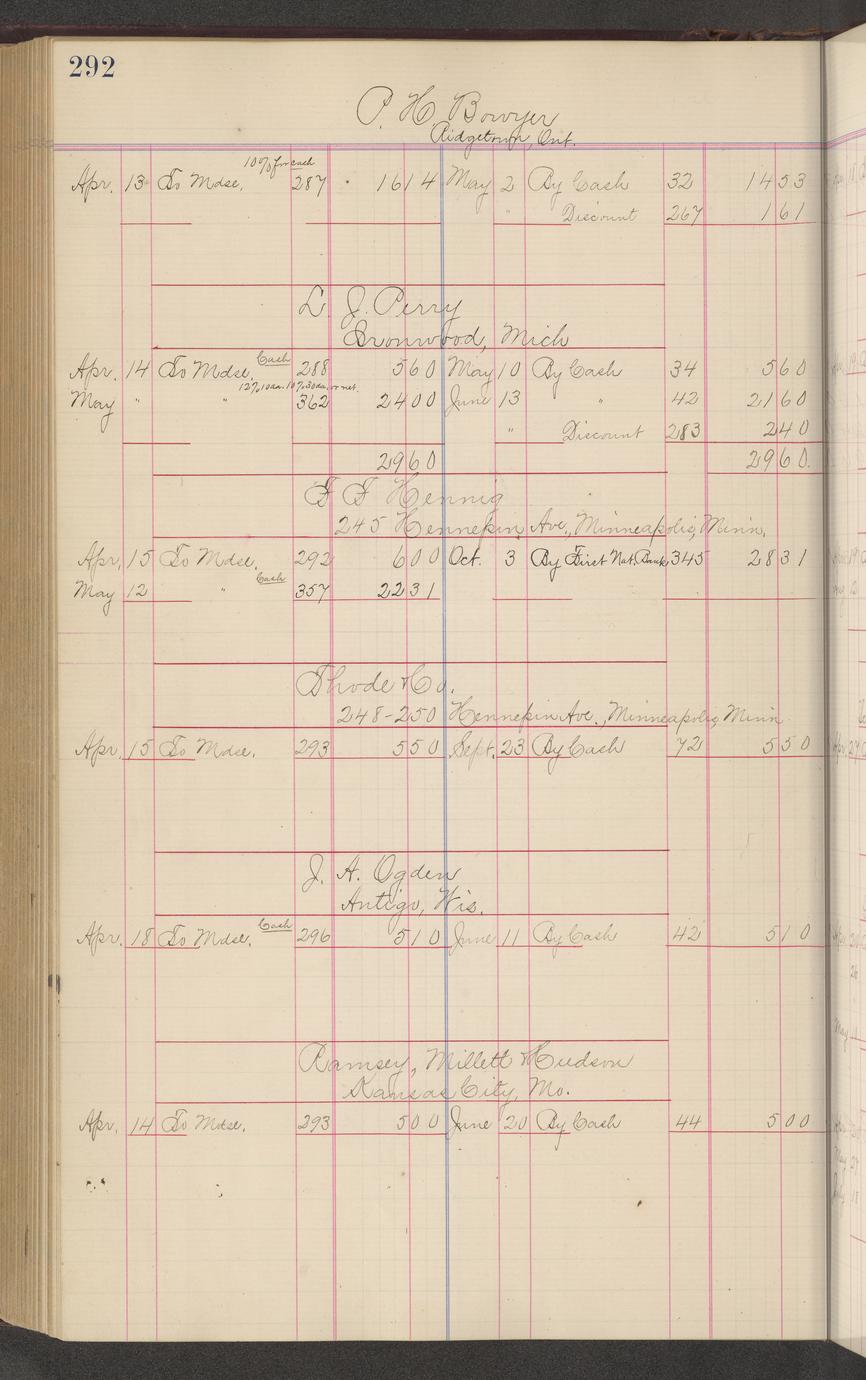 292
P. H. Bowyer
Ridgetown, Ont.
10% for cash
Apr. 13 To Mdse. 287 1614 May 2 By Cash 32 1453
" Discount 267 161
L. J. Perry
Ironwood, Mich
Cash
Apr. 14 To Mdse. 288 560 May 10 By Cash 34 560
12% 10 da. 10% 30 da. or net.
May " " 362 2400 June 13 " 42 2160
" Discount 283 240
2960 2960.
F F Hennig
245 Hennepin Ave., Minneapolis, Minn.
Apr. 15 To Mdse. 292 600 Oct. 3 By First Nat. Bank 345 2831
Cash
May 12 " 357 2231
Thode & Co.
248-250 Hennepin Ave., Minneapolis, Minn
Apr. 15 To Mdse. 293 550 Sept. 23 By Cash 72 550
J. A. Ogden
Antigo, Wis.
Cash
Apr. 18 To Mdse. 296 510 June 11 By Cash 42 510
Ramsey, Millett & Hudson
Kansas City, Mo.
Apr. 14 To Mdse. 293 500 June 20 By Cash 44 500